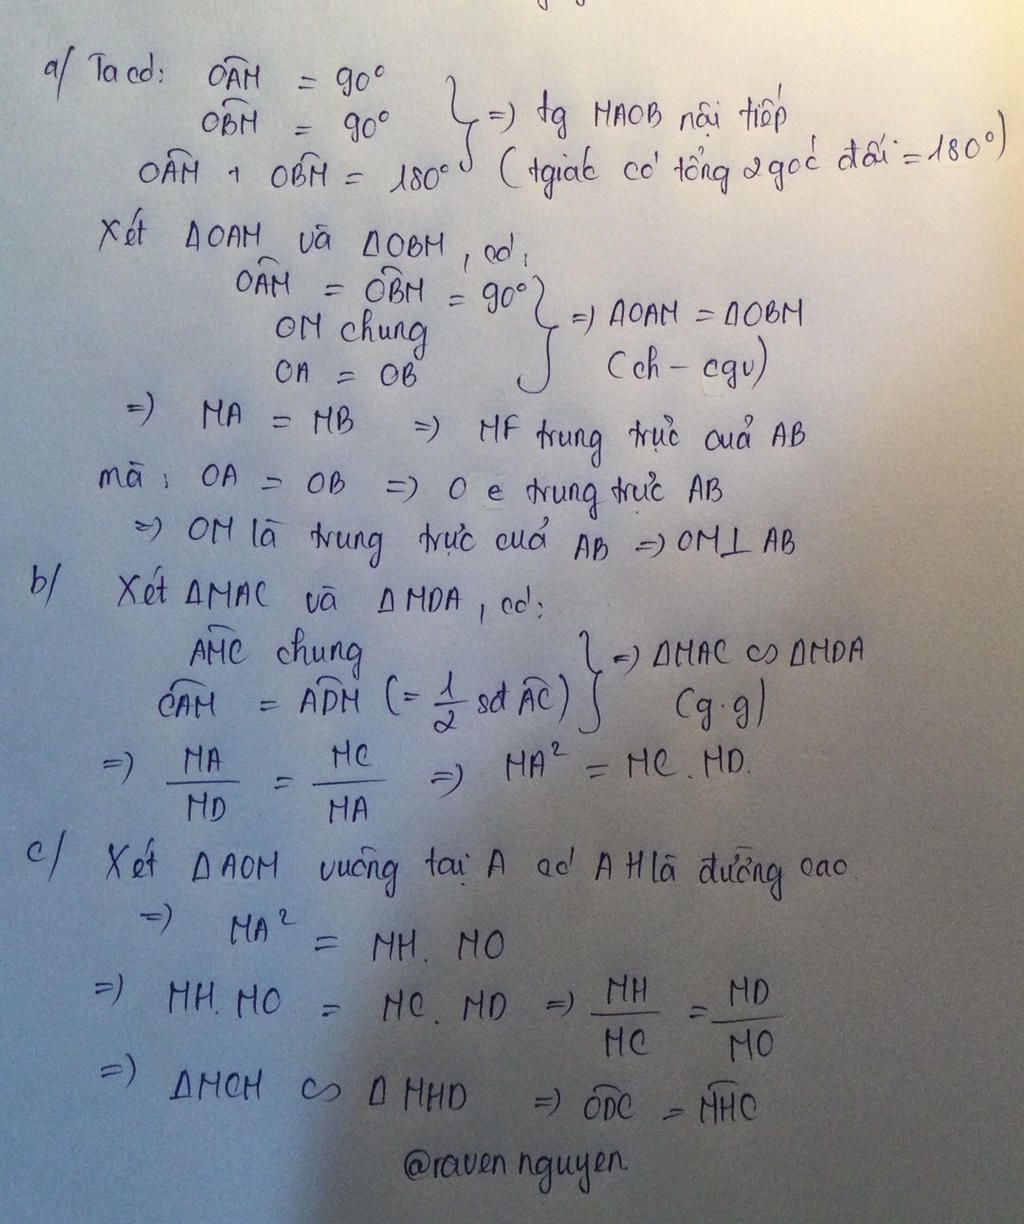 a/ Ta có: OAM = 90°
OBM = 90°
OAM + OBM = 180°
=> tg MAOB nội tiếp
(tgiác có tổng 2 góc đối = 180°)
Xét ΔOAM và ΔOBM, có:
OAM = OBM = 90°
OM chung
OA = OB
=> ΔOAM = ΔOBM
(ch - cgv)
=> MA = MB => MF trung trực của AB
mà: OA = OB => O e trung trực AB
=> OM là trung trực của AB => OM⊥AB
b/ Xét ΔMAC và ΔMDA, có:
AMC chung
CAM = ADM (= 1/2 sđ AC)
=> ΔMAC ∽ ΔMDA
(g.g)
=> MA/MD = MC/MA => MA² = MC. MD.
c/ Xét ΔAOM vuông tại A có AH là đường cao.
=> MA² = MH. MO
=> MH. MO = MC. MD => MH/MC = MD/MO
=> ΔMCH ∽ ΔMHD => ODC = MHC
@raven nguyen.